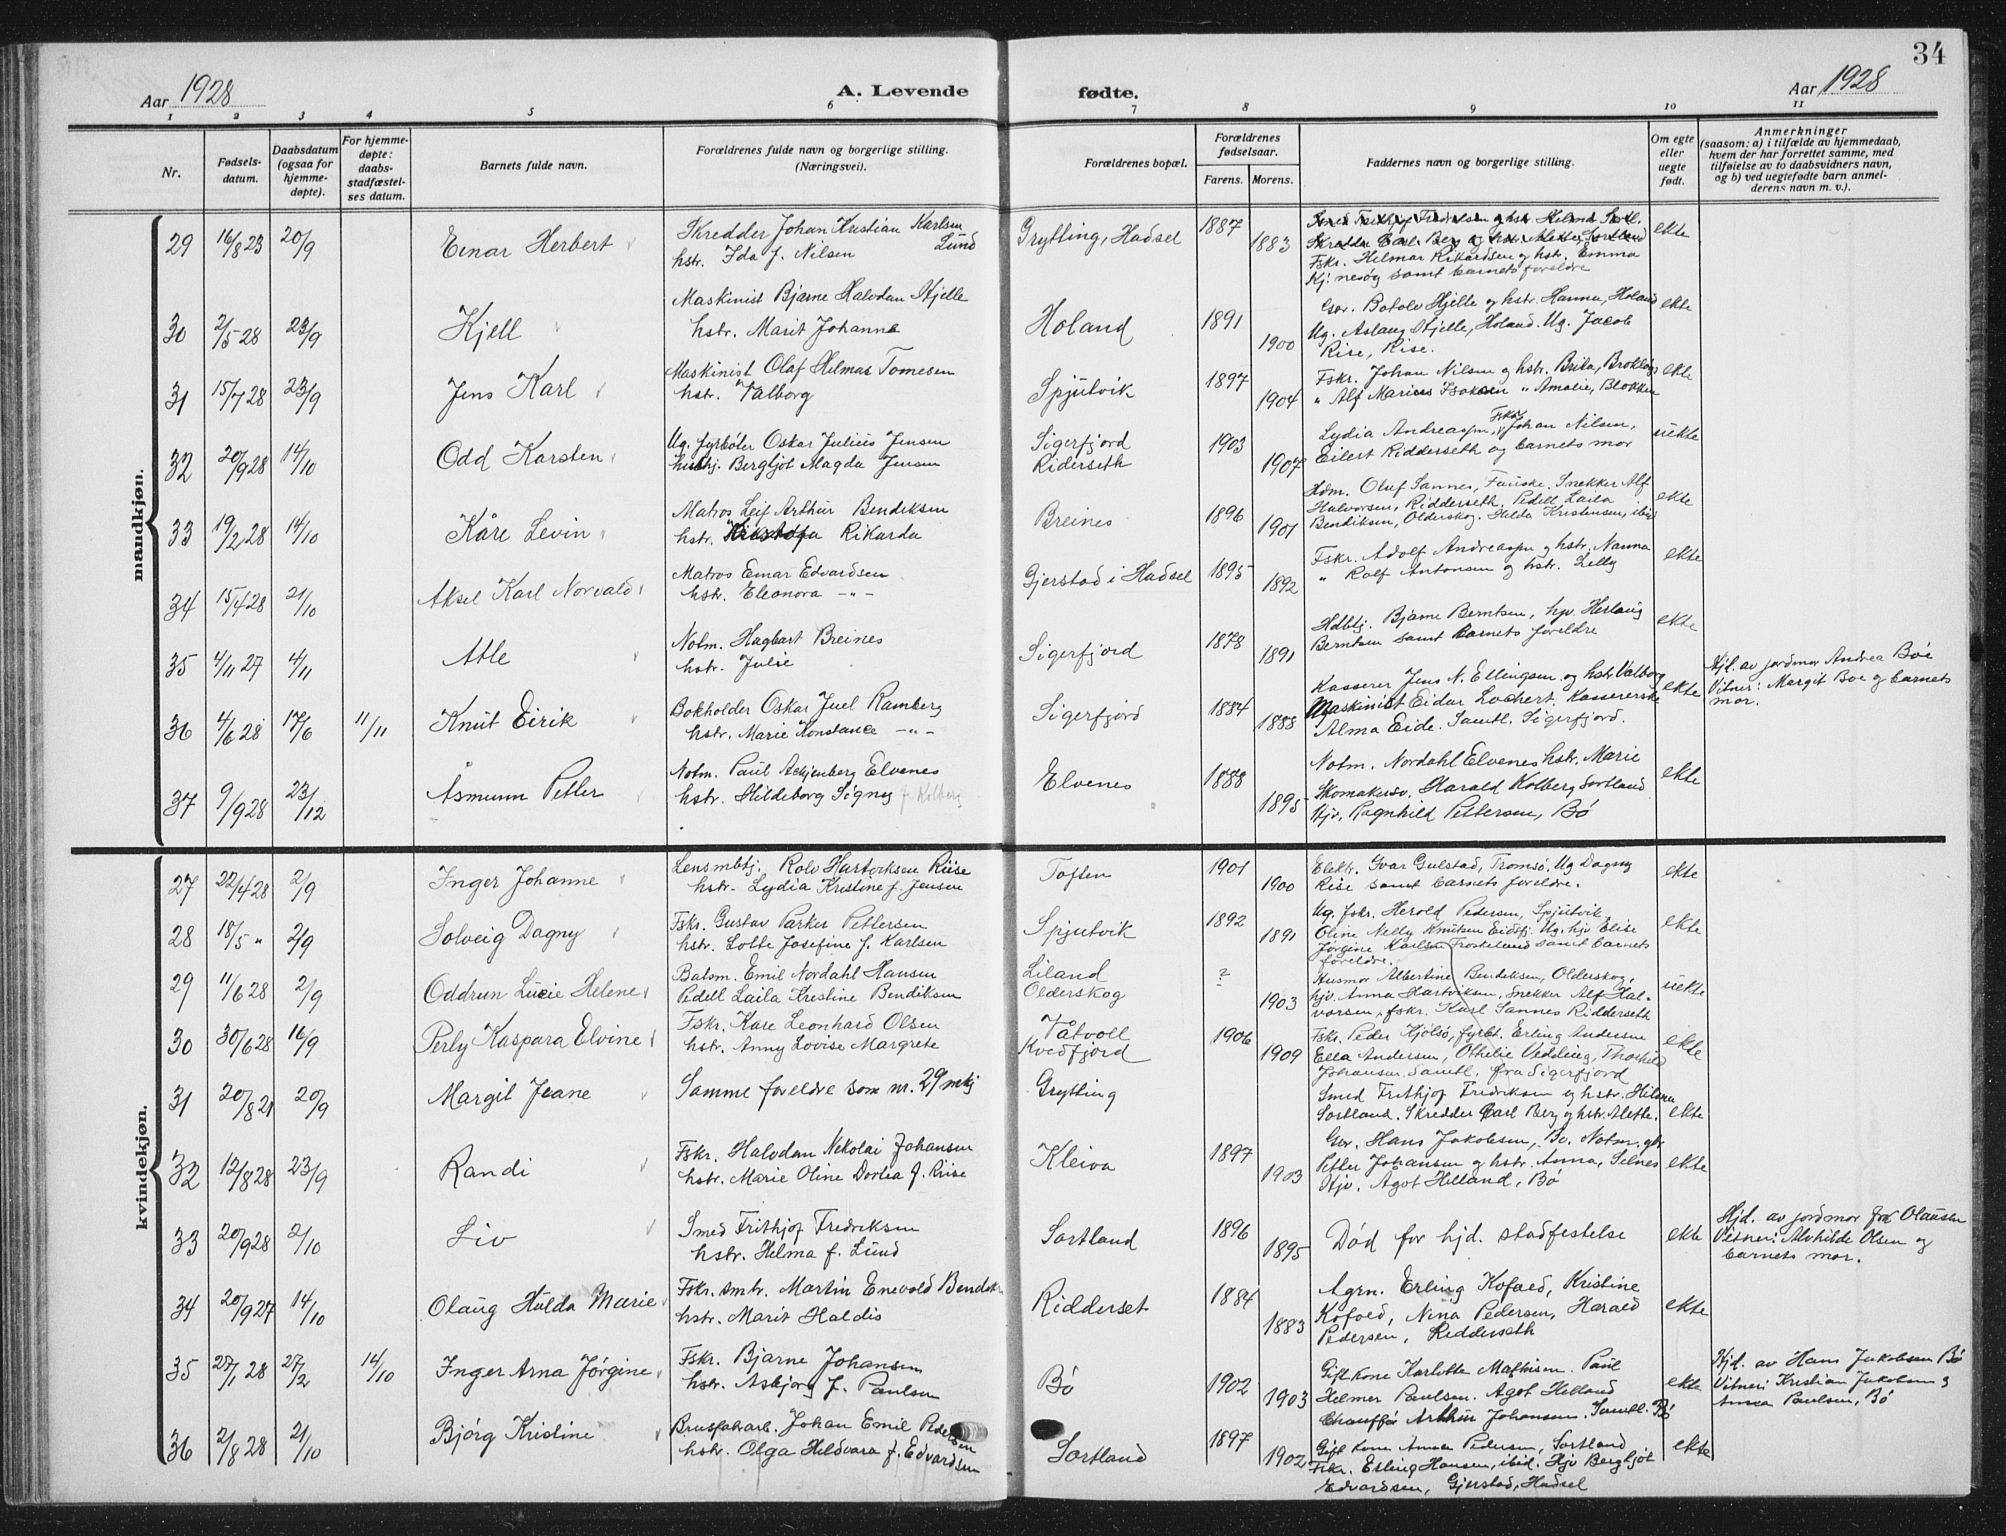 34
Aar 1928
A. Levende fødte.
Aar 1928
1 2 3 4 5 6 7 8 9 10 11
Nr.
Fødsels-
datum.
Daabsdatum
(ogsaa for
hjemme-
døpte).
For hjemme-
døpte:
daabs-
stadfæstel-
ses datum.
Barnets fulde navn.
Forældrenes fulde navn og borgerlige stilling.
(Næringsvei).
Forældrenes bopæl.
Forældrenes
fødselsaar.
Farens. Morens.
Faddernes navn og borgerlige stilling.
Om egte
eller
uegte
født.
Anmerkninger
(saasom: a) i tilfælde av hjemmedaab,
hvem der har forrettet samme, med
tilføielse av to daabsvidners navn,
og b) ved uegtefødte barn anmel-
derens navn m. v.).
mandkjøn.
29 16/8 23 20/9 Einar Herbert
Skredder Johan Kristian Karlsen
Lund
hstr. Ida f. Nilsen
Grytting, Hadsel 1887 1883
Fskr. Hilmar Rikardsen og hstr. Emma
Kj. nesøg samt barnets foreldre
ekte
30 2/5 28 23/9 Kjell
Maskinist Bjarne Halvdan Hjelle
hstr. Marit Johanne
Holand 1891 1900
Gbr. Botolv Hjelle og hstr. Hanna, Holand
Ug. Aslaug Hjelle, Holand. Ug. Jacob
Rise, Rise.
ekte
31 15/7 28 23/9 Jens Karl
Maskinist Olaf Helmar Tomesen
hstr. Valborg
Spjutvik 1897 1904
Fskr. Johan Nilsen og hstr. Brita,
" Alf Marius Isaksen " Amalie, Blokken
ekte
32 20/9 28 14/10 Odd Karsten
Ug. fyrbøter Oskar Julius Jensen
hushj. Bergljot Magda Jensen
Sigerfjord
Ridderseth
1903 1907
Lydia Andreassen, Fskr. Johan Nilsen,
Eilert Ridderseth og barnets mor
uekte
33 19/2 28 14/10 Kåre Levin
Matros Leif Arthur Bendiksen
hstr. Rikarda
Breines 1896 1901
Hdm. Oluf Sannes, Fauske. Snekker Alf
Halvorsen, Ridderseth. Pedell Laila
Bendiksen, Olderskog. Hilda Kristensen, ibid
ekte
34 15/4 28 21/10 Aksel Karl Norvald
Matros Einar Edvardsen
hstr. Eleonora -"-
Gjerstad i Hadsel 1895 1892
Fskr. Adolf Andreassen og hstr. Nanna
" Rolf Antonsen og hstr. Lelly
ekte
35 4/11 27 4/11 Atle
Notm. Hagbart Breines
hstr. Julie
Sigerfjord 1878 1891
Hdlbtj. Bjarne Berntsen, hjv. Herlaug
Berntsen samt barnets foreldre
ekte
36 4/6 28 17/6 11/11 Knut Eirik
Bokholder Oskar Juel Ramberg
hstr. Marie Konstance -"-
Sigerfjord 1884 1888
Kasserer Jens N. Ellingsen og hstr. Valborg
Maskinist Eidar Lochert. Kassererske
Alma Eide. Samtl. Sigerfjord.
ekte
Hjd. av jordmor Andrea Bøe
Vitner: Margit Boe og barnets
mor.
37 9/9 28 23/12 Åsmunn Petter
Notm. Paul Elvenes
hstr. Hildeborg Signy f. Kolberg
Elvenes 1888 1895
Notm. Nordahl Elvenes hstr. Marie
Skomakersv. Harald Kolberg Sortland
Hjv. Ragnhild Pettersen, Bø
ekte
kvindekjøn.
27 22/4 28 2/9 Inger Johanne
Lensmbtj. Rolv Hartviksen Riise
hstr. Lydia Kristine f. Jensen
Toften 1901 1900
Elektr. Ivar Gulstad, Tromsø. Ug. Dagny
Riise samt barnets foreldre.
ekte
28 18/5 " 2/9 Solveig Dagny
Fskr. Gustav Parker Pettersen
hstr. Lotte Josefine f. Karlsen
Spjutvik 1892 1891
Ug. fskr. Herold Pedersen, Spjutvik
Oline Nelly Knutsen Eidsfj. Ug. hjv Elise
Jørgine Karlsen samt barnets
foreldre.
ekte
29 11/6 28 2/9 Oddrun Lucie Helene
Batsm. Emil Nordahl Hansen
Pedell Laila Kristine Bendiksen
Liland
Olderskog
? 1903
Husmor Albertine Bendiksen, Olderskog,
hjv. Anna Hartviksen, Snekker Alf Hal-
vorsen, fskr. Karl Sannes Ridderseth
uekte
30 30/6 28 16/9 Perly Kaspara Elvine
Fskr. Kare Leonhard Olsen
hstr. Anny Lovise Margrete
Våtvoll
Kvedfjord
1906 1909
Fskr. Peder Hjølsø, fyrbt. Erling Andersen
Ella Andersen, Othelie Vedding, Thorhild
Johansen. Samtl. fra Sigerfjord
ekte
31 20/8 21 20/9 Margit Jeane
Samme foreldre som nr. 29 mkj
Grytting
Smed Frithjof Fredriksen og hstr. Helma
Sortland. Skredder Carl Berg og hstr. Alette.
ekte
32 12/8 28 23/9 Randi
Fskr. Halvdan Nikolai Johansen
hstr. Marie Oline Dortea f. Riise
Kleiva 1897 1903
Gbr. Hans Jakobsen, Bø. Notm. gbr.
Petter Johansen og hstr. Anna, Selnes
Hjv. Agot Helland, Bø
ekte
33 20/9 28 2/10 Liv
Smed Frithjof Fredriksen
hstr. Helma f. Lund
Sortland 1896 1895
Død for hjd. stadfestelse
ekte
Hjd. av jordmor frk Olausen
Vitner: Alvhilde Olsen og
barnets mor.
34 20/9 27 14/10 Olaug Hulda Marie
Fskr. smbr. Martin Enevold Bendiks
hstr. Marit Haldis
Ridderset 1884 1883
Agrn. Erling Kofoed, Kristine
Kofoed, Nina Pedersen, Harald
Pedersen, Ridderseth
ekte
35 27/1 28 27/2 14/10 Inger Arna Jørgine
Fskr. Bjarne Johansen
hstr. Asbjørg f. Paulsen
Bø 1902 1903
Gift kone Karlotte Mathisen. Paul
Helmer Paulsen. Agot Helland
Chauffør Arthur Johansen. Samtl. Bø
ekte
Hjd. av Hans Jakobsen Bø
Vitner: Kristian Jakobsen og
Anna Paulsen, Bø
36 2/8 28 21/10 Bjørg Kristine
Brusfabarb. Johan Emil Pedersen
hstr. Olga Heldvara f. Edvardsen
Sortland 1897 1902
Gift kone Anna Pedersen, Sortland
Fskr. Erling Hansen, ibid. Hjv Bergljot
Edvardsen, Gjerstad, Hadsel
ekte